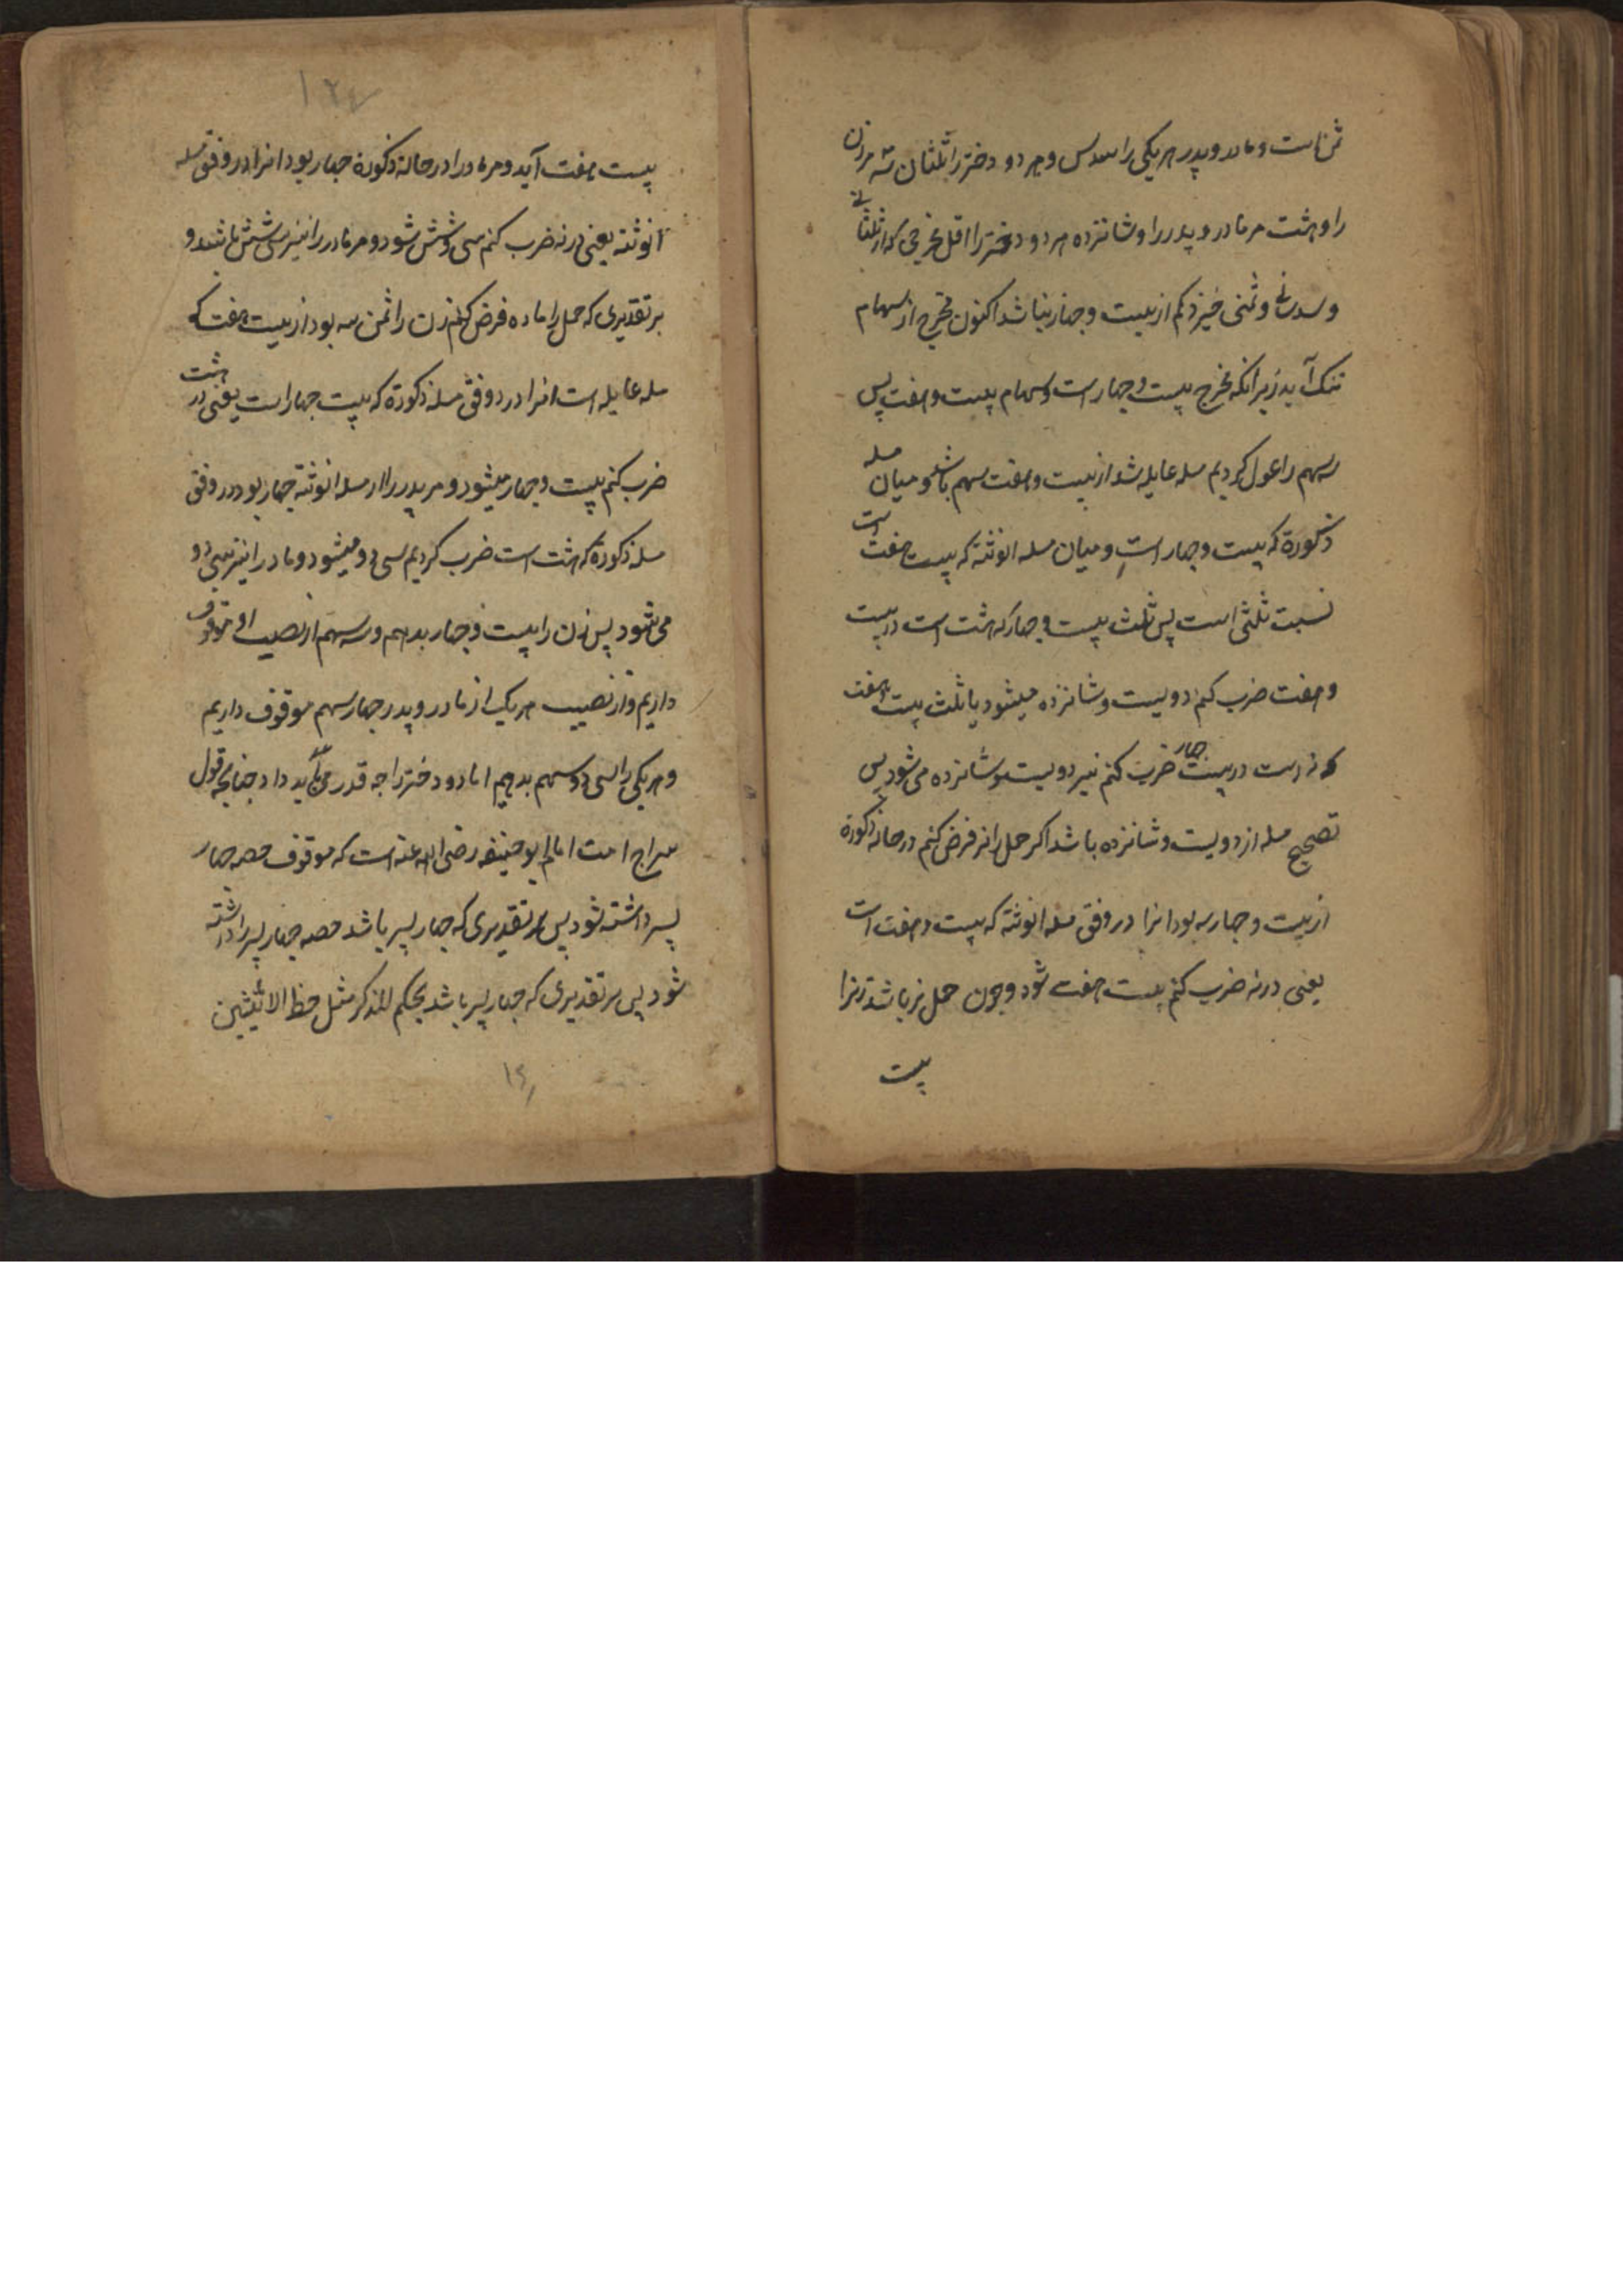 ثمن است و مادر و پدر هر یکی را سدس و هر دو دختر را ثلثان سه مر زن
را و هشت مر مادر و پدر را و شانزده مر دو دختر را اقل مخرجی که از ثلثانی
و سدسانی و ثمنی خیزد کم از بیست و چهار نباشد اکنون مخرج از سهام
تنک آید زیرانکه مخرج بیست و چهار است و سهام بیست و هفت پس
سهم را عول کردیم مسله عایله شد از بیست و هفت سهم باشد و میان مسله
ذکورة که بیست و چهار است و میان مسله انوثته که بیست هفت است
نسبت ثلثی است پس ثلث بیست و چهار که هشت است در بیست
و هفت ضرب کنم دویست و شانزده میشود یا ثلث بیست و هفت
که نه است در بیست چهار ضرب کنم نیز دویست و شانزده می شود پس
تصحیح مسله از دویست و شانزده باشد اکر حمل را نر فرض کنم در حالة ذکورة
از بیست و چهار سه بود انرا در وفق مسله انوثته که بیست و هفت است
یعنی در نه ضرب کنم بیست هفت شود و چون حمل نر باشد زنرا
بیست
۱۲۴
بیست هفت آید و مر مادر را در حالة ذکورة چهار بود انرا در وفق مسله
انوثته یعنی در نه ضرب کنم سی و شش شود و مر مادر را نیز سی شش باشد و
بر تقدیری که حمل را ماده فرض کنم زن را ثمن سه بود از بیست هفت که
مسله عایله است انرا در وفق مسله ذکورة که بیست چهار است یعنی در هشت
ضرب کنم بیست و چهار میشود و مر پدر را از مسله انوثته چهار بود در وفق
مسله ذکورة که هشت است ضرب کردیم سی و دو میشود و مادر را نیز سی و دو
می شود پس زن را بیست و چهار بدهم و سه سهم از نصیب او موقوف
داریم و از نصیب هر یک از مادر و پدر چهار سهم موقوف داریم
و هر یکی را سی و دو سهم بدهیم اما دو دختر را چه قدر می باید داد چنانچه قول
سراج امت امام ابو حنیفه رضی الله عنه است که موقوف حصه چهار
پسر داشته شود پس بر تقدیری که چهار پسر باشد حصه چهار پسر را داشته
شود پس بر تقدیری که چهار پسر باشد بحکم للذکر مثل حظ الانثیین